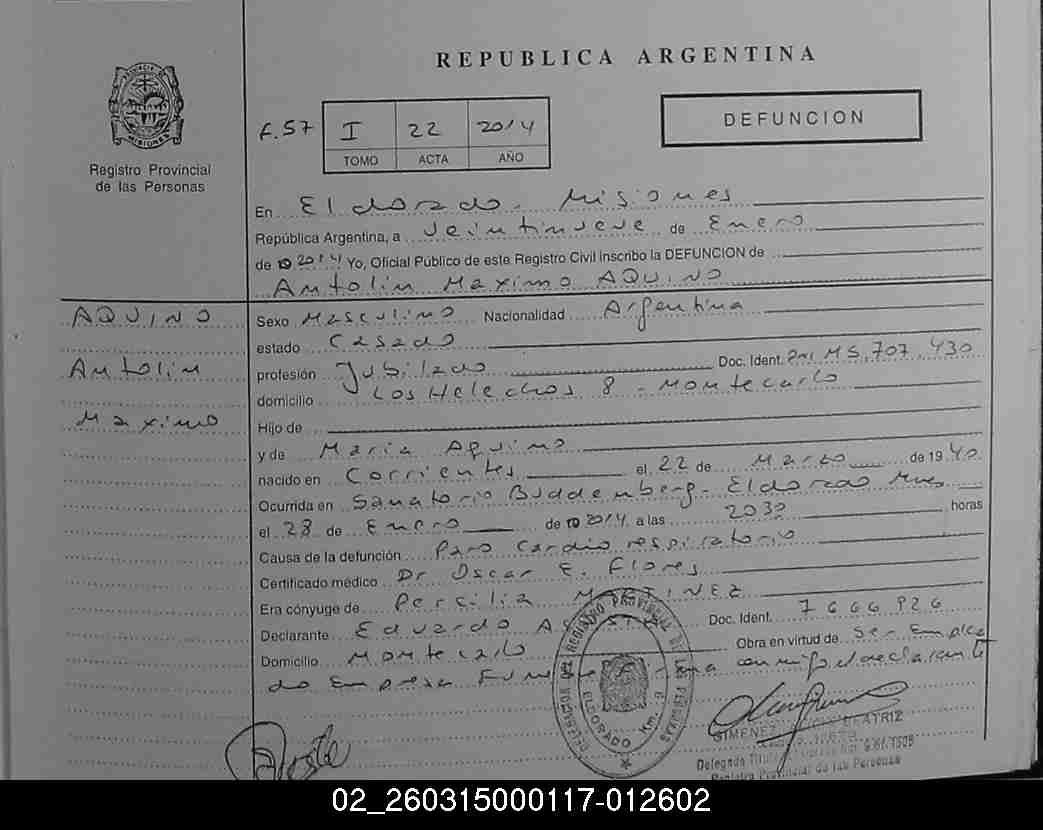 REPUBLICA ARGENTINA
PROVINCIA DE MISIONES
Registro Provincial
de las Personas
F.57
I 22 2014
TOMO ACTA AÑO
DEFUNCION
En Eldorado - Misiones
República Argentina, a Veintinueve de Enero
de 2014 Yo, Oficial Público de este Registro Civil inscribo la DEFUNCION de
Antolin Maximo AQUINO
AQUINO
Antolin
Maximo
Sexo Masculino Nacionalidad Argentina
estado Casado
profesión Jubilado Doc. Ident. DNI M5.707.430
domicilio Los Helechos 8 - Montecarlo
Hijo de
y de Maria Aquino
nacido en Corrientes el 22 de Marzo de 1940
Ocurrida en Sanatorio Buddemberg - Eldorado Mnes
el 28 de Enero de 2014 a las 2030 horas
Causa de la defunción Paro cardio respiratorio
Certificado médico Dr Oscar E. Flores
Era cónyuge de Percilia MARTINEZ
Declarante Eduardo Doc. Ident. 7666926
Domicilio Montecarlo Obra en virtud de ser emplea
do Empresa conmigo el declarante
REGISTRO PROVINCIAL DE LAS PERSONAS
ELDORADO Km. 9
GIMENEZ BEATRIZ
Delegada Titular
Registro Provincial de las Personas
02_260315000117-012602